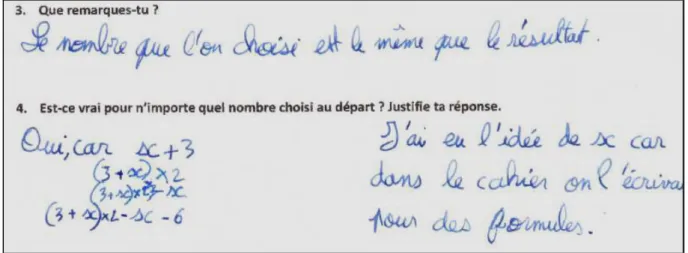 3. Que remarques-tu ?
Le nombre que l'on choisi est le même que le résultat.
4. Est-ce vrai pour n'importe quel nombre choisi au départ ? Justifie ta réponse.
Oui, car x+3
(3+x)×2
(3+x)×2-x
(3+x)×2-x-6
J'ai eu l'idée de x car
dans le cahier on l'écriva
pour des formules.